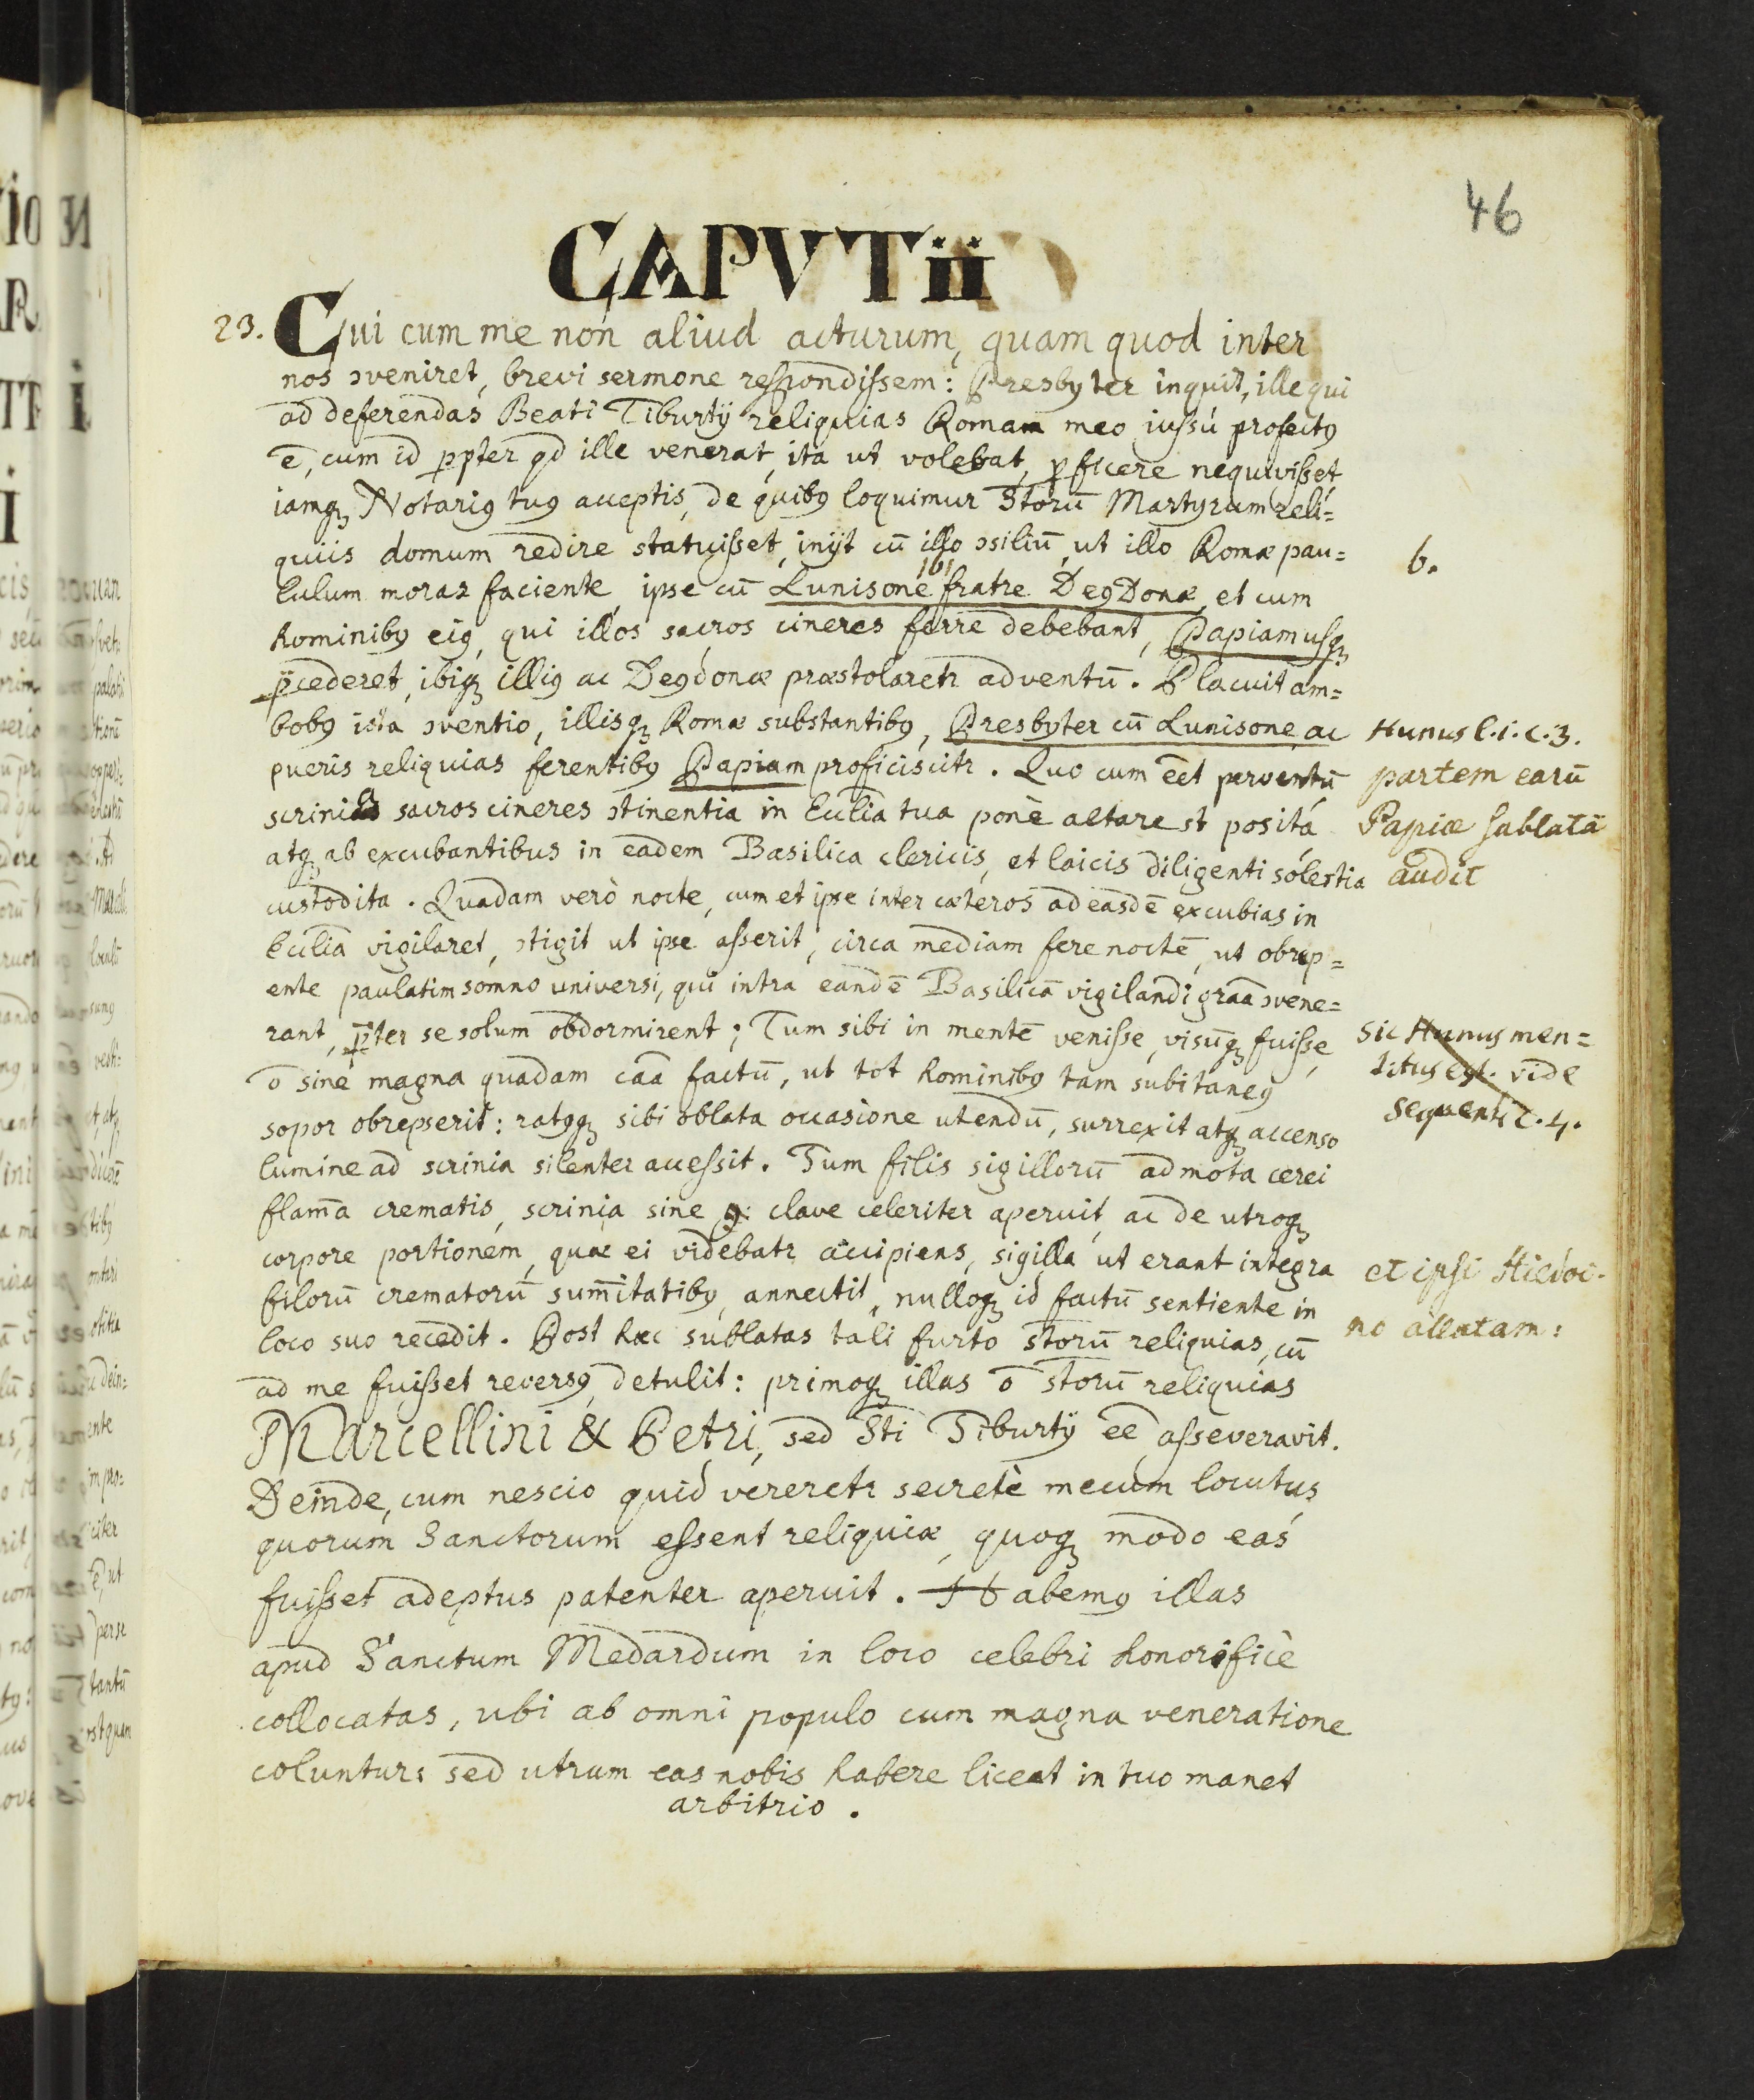 46
CAPVT ii
23. Cui cum me non aliud acturum, quam quod inter
nos ɔveniret, brevi sermone respondissem: Presbyter inquit, ille qui
ad deferendas Beati Tiburtij reliquias Romam meo iussú profectꝰ
ē, cum id ꝓpter qd ille venerat, ita ut volebat, ꝑficere nequivisset
iamqꝫ Notariꝰ tuꝰ acceptis, de quibꝰ loquimur Storū Martyrum reli=
quiis domum redire statuisset, inijt cū illo ɔsiliū, ut illo Romæ pau=
b.
lulum moraz faciente, ipse cū Lunisone fratre DeꝰDonæ, et cum
hominibꝰ eiꝰ, qui illos sacros cineres ferre debebant, Papiam usqꝫ
p̄cederet, ibiqꝫ illiꝰ ac Deꝰdonæ præstolaretr adventū. Placuit am=
bobꝰ ista ɔventio, illisqꝫ Romæ substantibꝰ, Presbyter cū Lunisone ac
Hunus l.i.c.3.
pueris reliquias ferentibꝰ Papiam proficiscitr. Quo cum eēt perventū
partem earū
scrinia sacros cineres ɔtinentia in Ecclīa tua ponè altare st positá
Papiæ sublatā
atqꝫ ab excubantibus in eadem Basilica clericis, et laicis diligenti solertia
audit
custodita. Quadam verò nocte, cum et ipse inter cæteros ad easdē excubias in
Ecclīa vigilaret, ɔtigit ut ipse asserit, circa mediam fere noctē, ut obrep=
ente paulatim somno universi, qui intra eandē Basilicā vigilandi grāa ɔvene=
rant, p̄ter se solum obdormirent; Tum sibi in mentē venisse, visūqꝫ fuisse,
Sic Hunus men=
ō sine magna quadam cāa factū, ut tot hominibꝰ tam subitaneꝰ
titus est. vide
sopor obrepserit: ratꝰqꝫ sibi oblata occasione utendū, surrexit atqꝫ accenso
sequenti c.4.
lumine ad scrinia silenter accessit. Tum filis sigillorū admota cerei
flam̄a crematis, scrinia sine clave celeriter aperuit, ac de utroqꝫ
corpore portionem, quæ ei videbatr accipiens, sigilla, ut erant integra
et ipsi Hildoi-
filorū crematorū sum̄itatibꝰ, annectit, nulloqꝫ id factū sentiente in
no allatam:
loco suo recedit. Post hæc sublatas tali furto storū reliquias, cū
ad me fuisset reversꝰ, detulit: primoqꝫ illas ō storū reliquias
Marcellini & Petri, sed Sti Tiburtij eē asseveravit.
Deinde, cum nescio quid vereretr secretè mecum locutus
quorum Sanctorum essent reliquiæ, quoqꝫ modo eas
fuisset adeptus patenter aperuit. Habemꝰ illas
apud Sanctum Medardum in loco celebri honorificè
collocatas, ubi ab omni populo cum magna veneratione
coluntur: sed utrum eas nobis habere liceat in tuo manet
arbitrio.